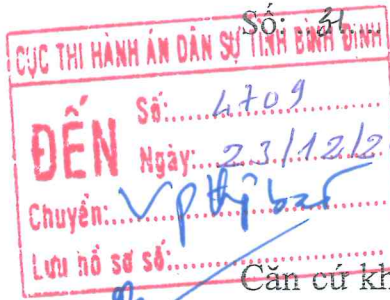 Số: 31
CỤC THI HÀNH ÁN DÂN SỰ TỈNH BÌNH ĐỊNH
ĐẾN
Số: 4709
Ngày: 23/12/2
Chuyển: VP
Lưu hồ sơ số:
Căn cứ kh